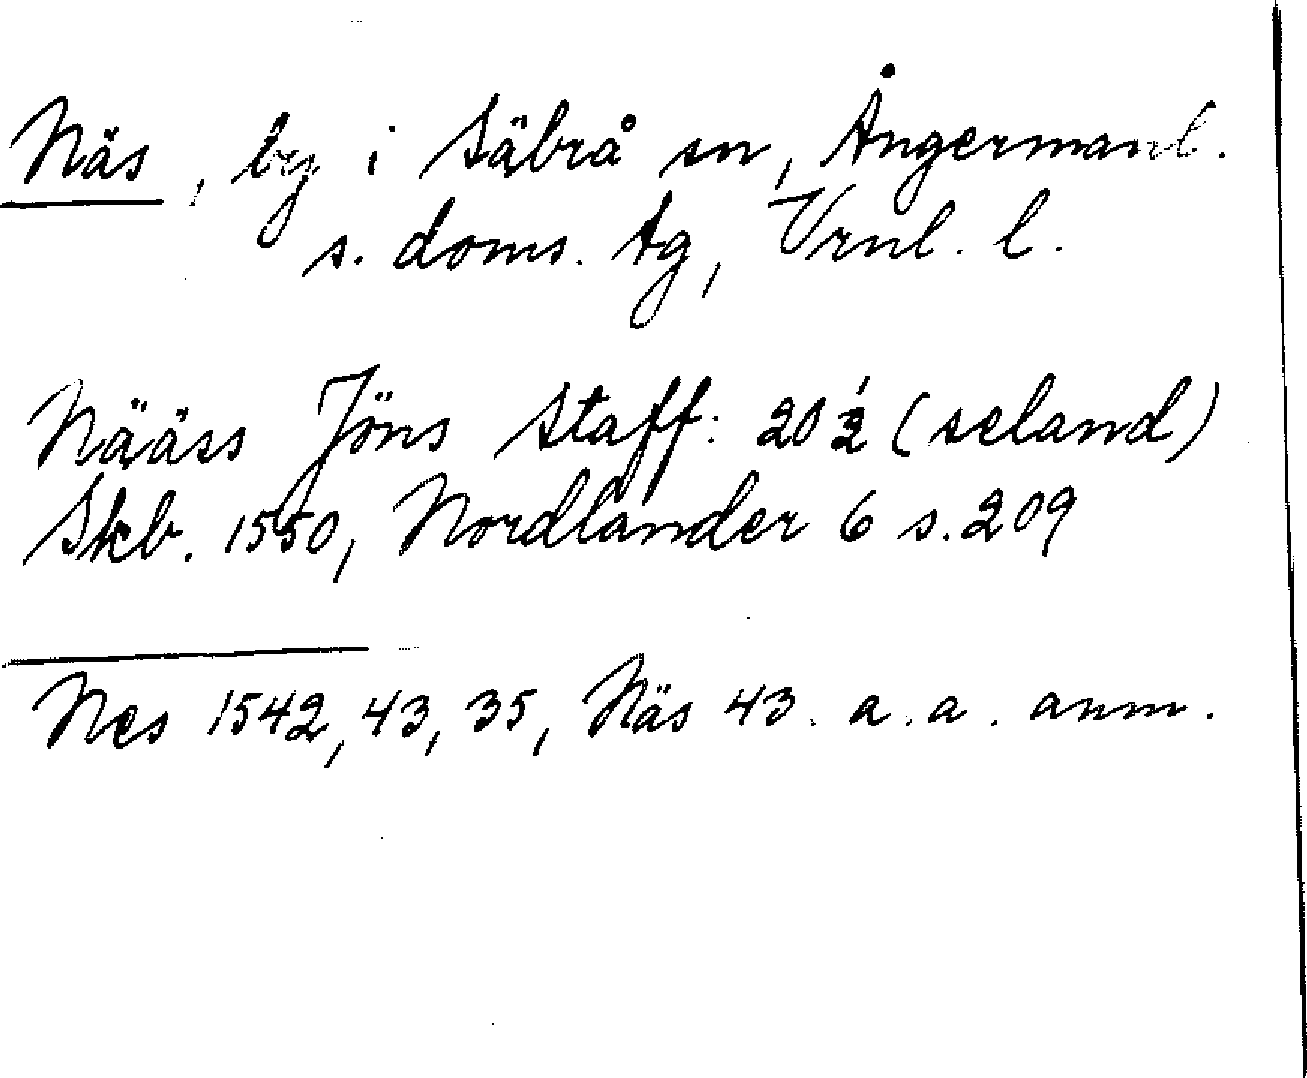 Näs, by i Säbrå sn, Ångermanl.
s. doms. tg, Vrnl. l.
Nääss Jöns Staff: 20 ½ (seland)
Skb. 1550, Nordlander 6 s. 209
Nes 1542, 43, 35, Näs 43. a.a. anm.